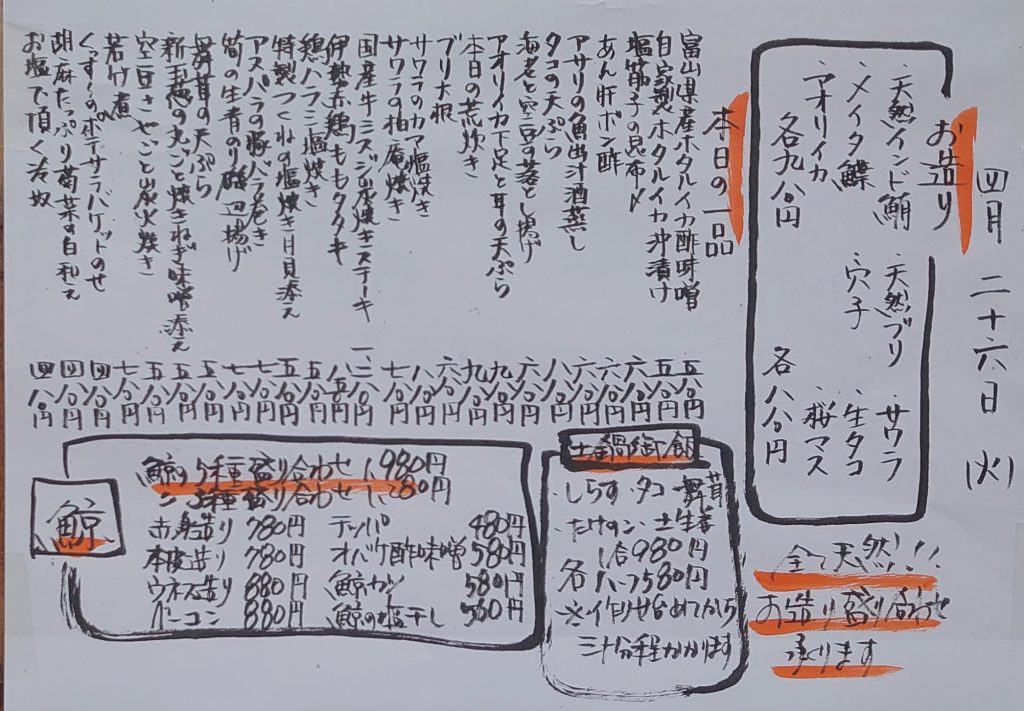 四月二十六日(火)
お造り
・天然インド鮪
・メイタ鰈
・アオリイカ
各九八〇円
・天然ブリ
・穴子
・サワラ
・生タコ
・桜マス
各八八〇円
全て天然!!
お造り盛り合わせ
承ります
本日の一品
富山県産ホタルイカ酢味噌 五八〇円
自家製ホタルイカ沖漬け 五八〇円
塩筋子の昆布〆 六八〇円
あん肝ポン酢 六八〇円
アサリの魚出汁酒蒸し 六八〇円
タコの天ぷら 八八〇円
海老と空豆の落とし揚げ 六八〇円
アオリイカ下足と耳の天ぷら 九八〇円
本日の荒炊き 九八〇円
ブリ大根 六八〇円
サワラのカマ塩焼き 八八〇円
サワラの柚庵焼き 七八〇円
国産牛ミスジの炭焼きステーキ 一、二八〇円
伊勢赤鶏ももタタキ 八五〇円
鶏ハラミ塩焼き 五八〇円
特製つくねの塩焼き月見添え 五八〇円
アスパラの豚バラ巻き 七八〇円
筍の生青のり磯辺揚げ 七八〇円
舞茸の天ぷら 五八〇円
新玉葱の丸ごと焼きねぎ味噌添え 五八〇円
空豆さやごと炭火焼き 五八〇円
若竹煮 七八〇円
くっすんのポテサラバケットのせ 四八〇円
胡麻たっぷり菊菜の白和え 四八〇円
お塩で頂く冷奴 四八〇円
土鍋御飯
・しらす・タコ・舞茸
・たけのこ・土生姜
一合980円
各ハーフ580円
※作りせ始めてから
三十分程かかります
鯨
鯨の5種盛り合わせ 1,980円
〃 3種盛り合わせ 1,280円
赤身造り 780円
本皮造り 780円
ウネス造り 880円
ベーコン 880円
テッパ 480円
オバケ酢味噌 580円
鯨カツ 580円
鯨の塩干し 560円